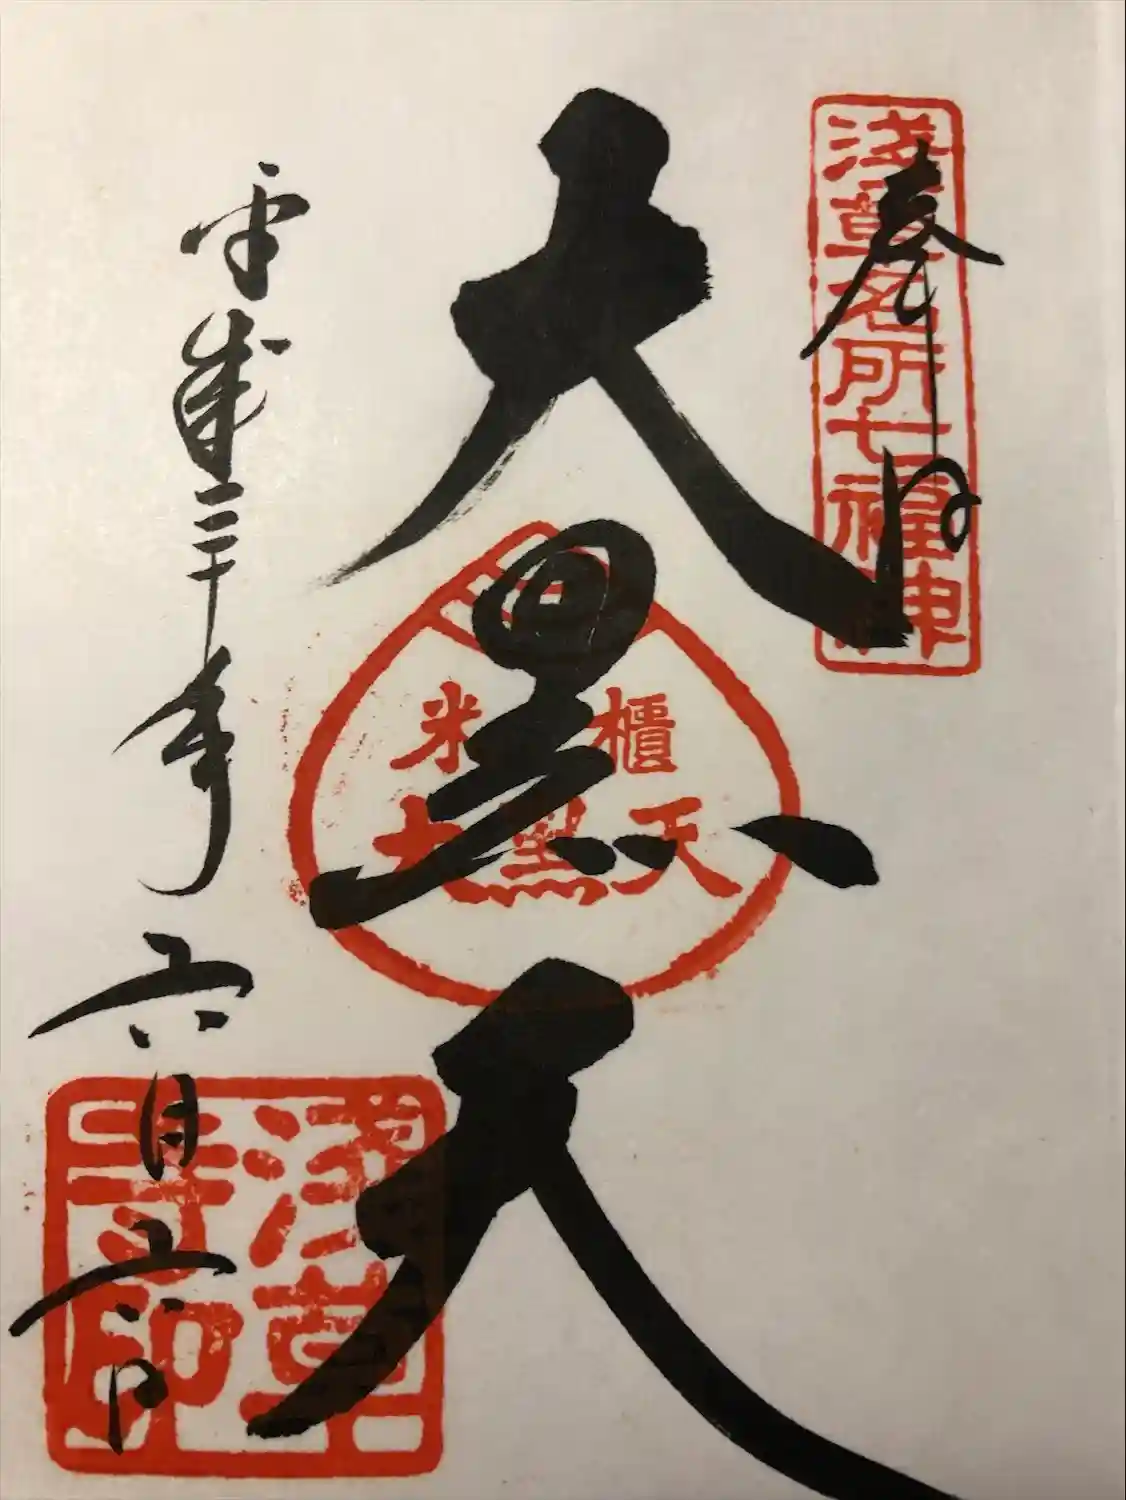 奉拝
淺草名所七福神
大黒天
米櫃
大黒天
平成三十年六月六日
淺草寺印